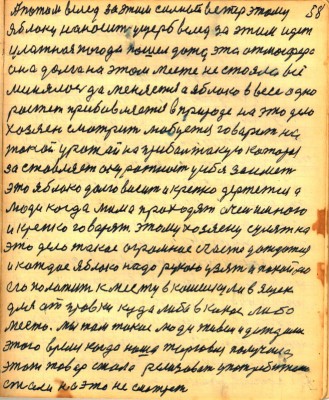 58
А потом вслед за этим сильный ветер этому
яблоку наносит ущерб вслед за этим идет
и латная погода пошел дождь эта атмосфера
она долго на этом месте не стояла всё
менялось да меняется а яблоко в весе одно
растет прибавляется в природе на это дело
хозяин смотрит любуется говорит на
такой урожай на прибыль такую которая
заставляет окружность у себя заимеет
это яблоко долго висит и крепко держится а
люди когда мимо проходят очень много
и крепко говорят этому хозяину
это дело такое огромное счастье дождатся
и каждое яблоко надо рукою взять и покойно
его положить к месту в кошелку ли в ящик
для отправки куда либо в какое либо
место. мы там такие люди жили и дождали
этого время когда наша торговля получила
этот товар стала реализовать употреблять
стали на это не смотрят